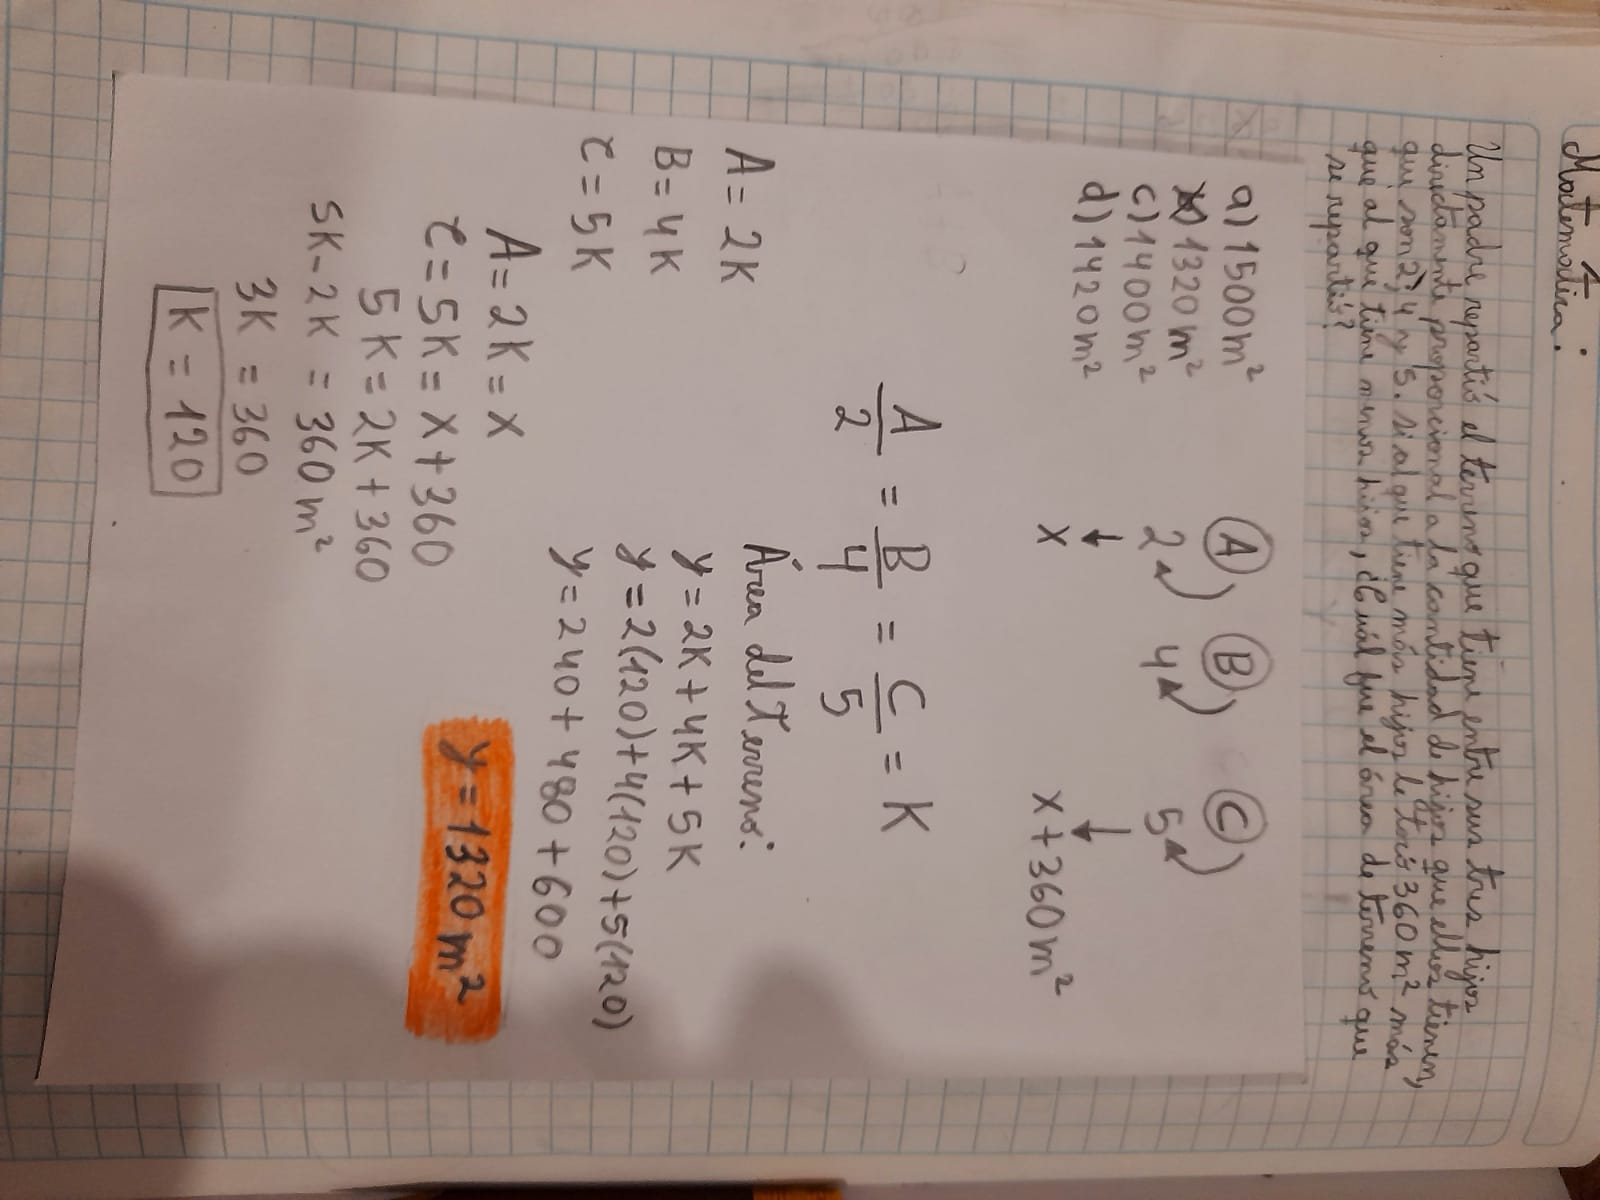 Matemática:
Un padre repartió el terreno que tiene entre sus tres hijos
directamente proporcional a la cantidad de hijos que ellos tienen,
que son 2, 4 y 5. si al que tiene más hijos le tocó 360 m² más
que al que tiene menos hijos, ¿Cuál fue el área de terreno que
se repartió?
a) 1500 m²
b) 1320 m²
c) 1400 m²
d) 1420 m²
A B C
2 4 5
x x + 360 m²
A/2 = B/4 = C/5 = K
A = 2K
B = 4K
C = 5K
A = 2K = x
C = 5K = x + 360
5K = 2K + 360
5K - 2K = 360 m²
3K = 360
K = 120
Área del Terreno:
y = 2K + 4K + 5K
y = 2(120) + 4(120) + 5(120)
y = 240 + 480 + 600
y = 1320 m²